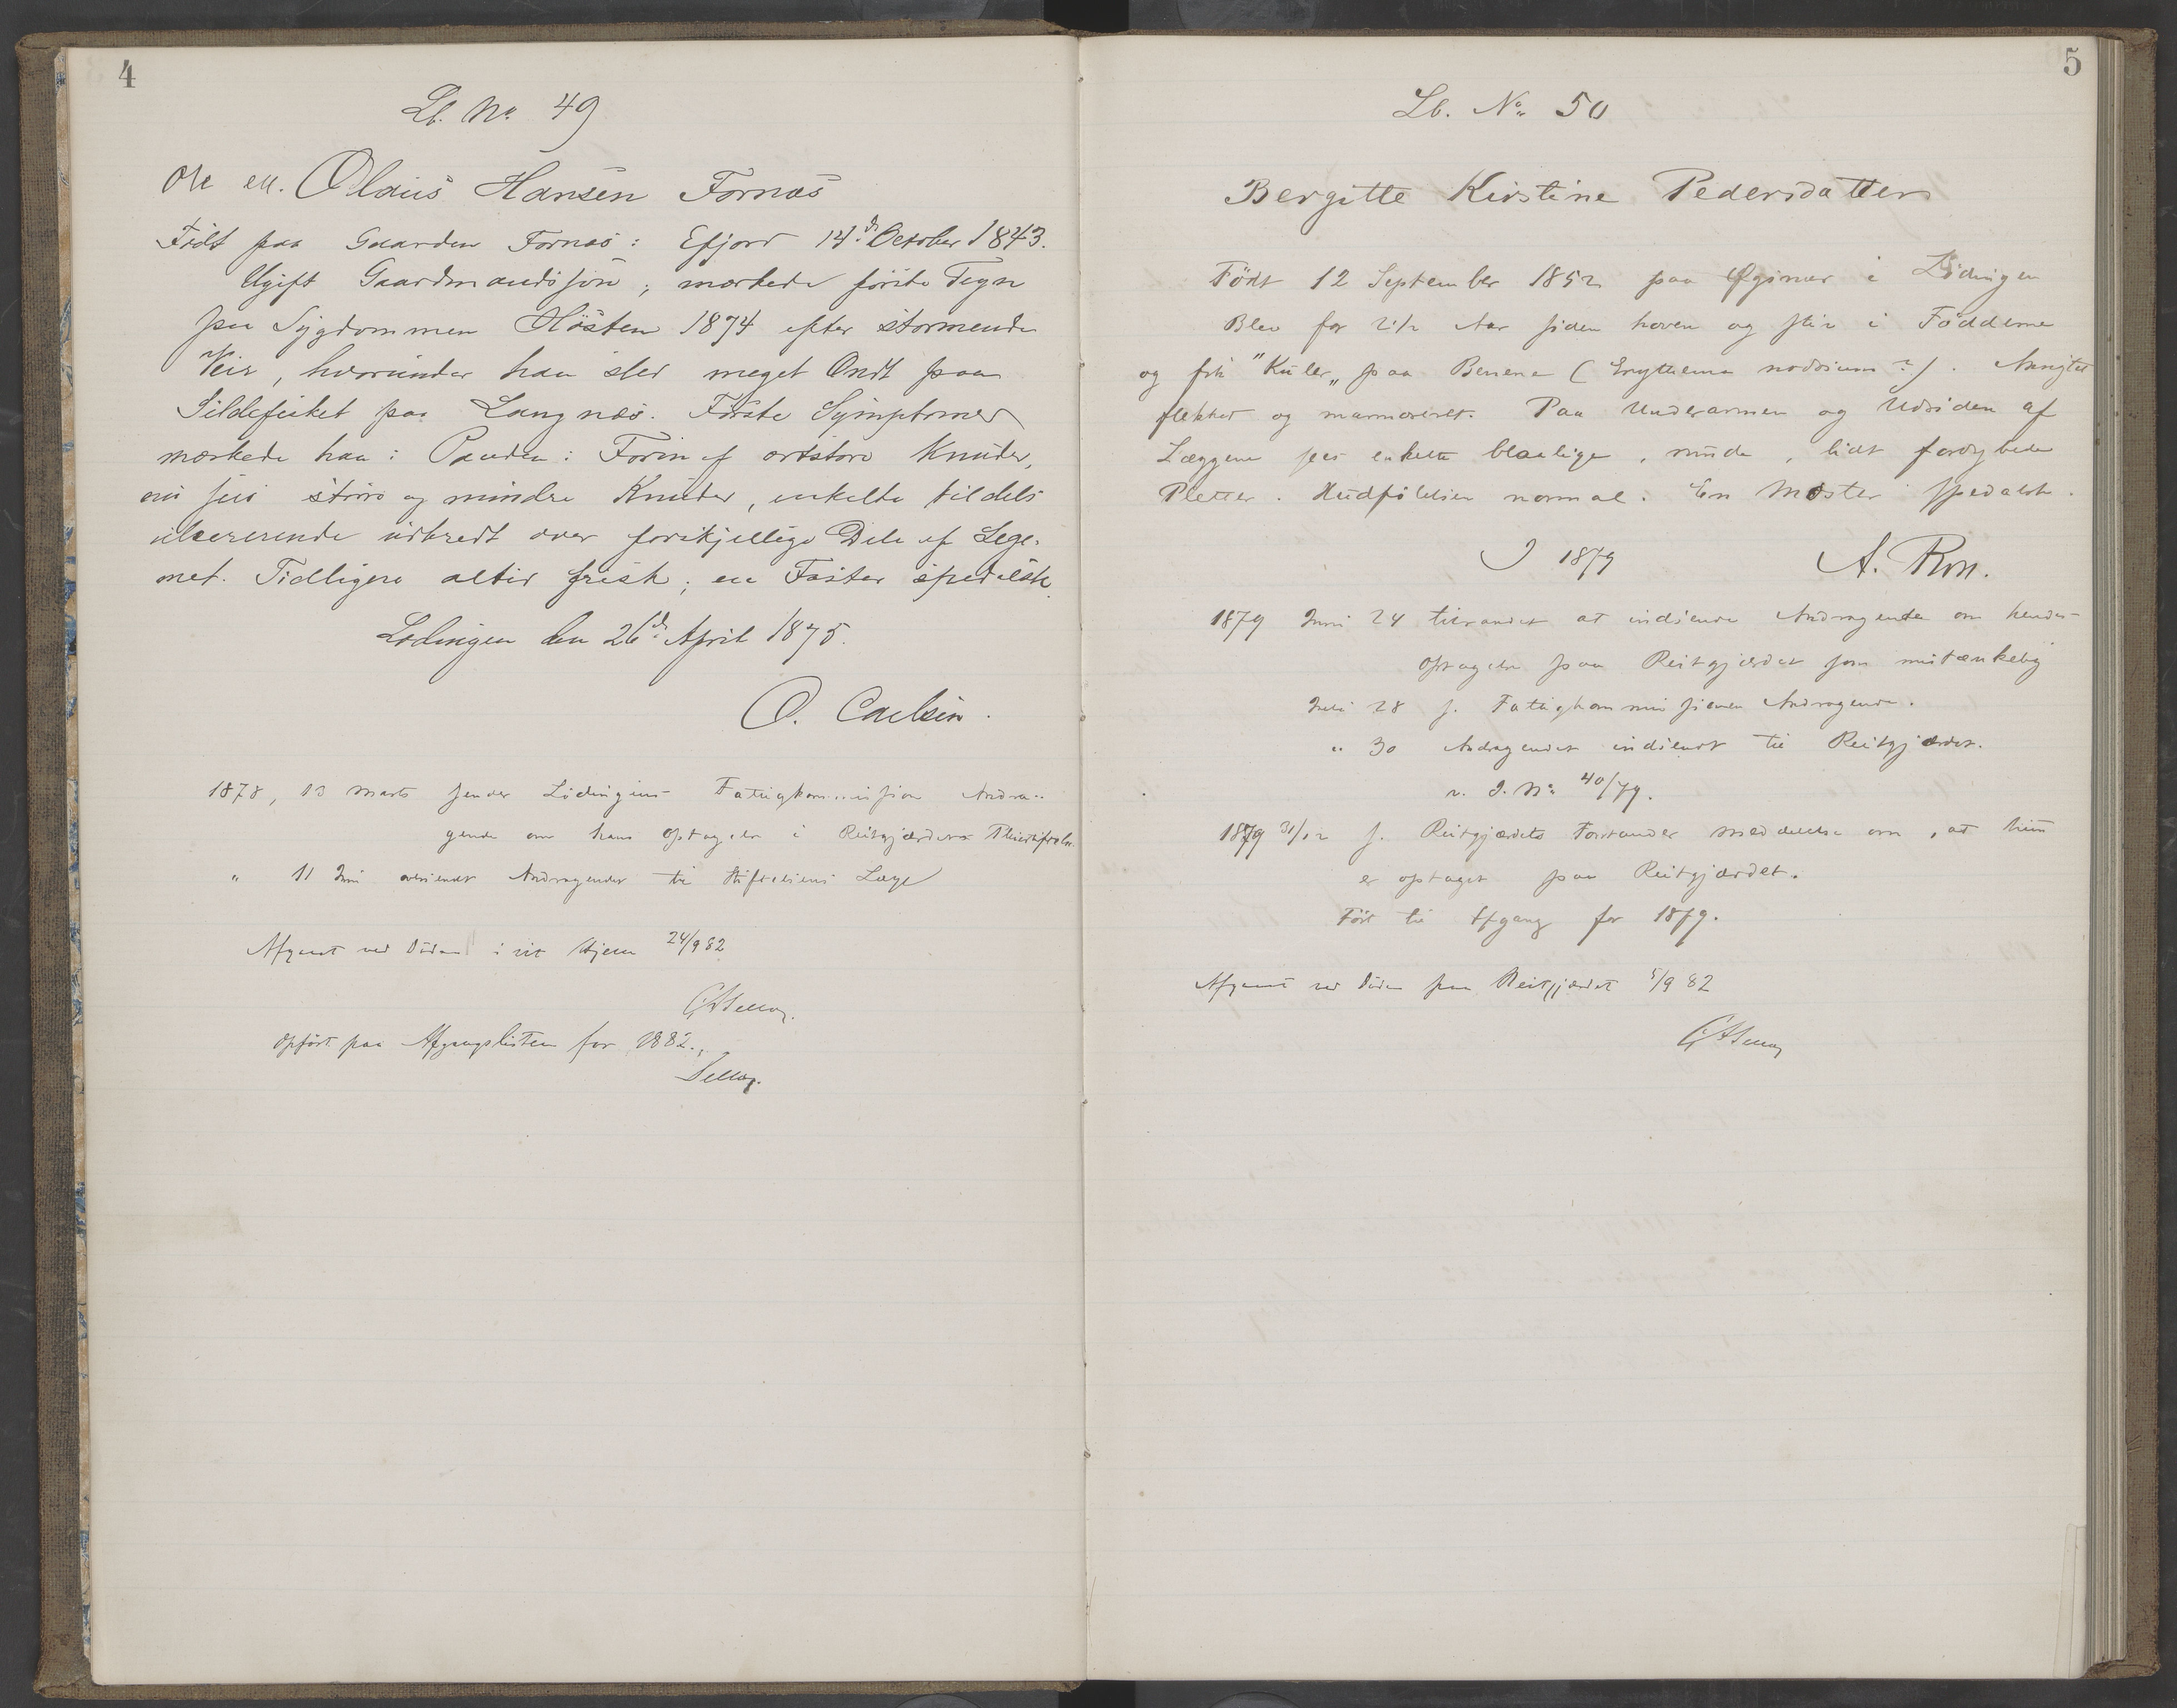 4
Lb. No. 49
Ole ell. Olaus Hansen Fornæs
Født paa Gaarden Fornæs i Efjord 14de October 1843.
Ugift Gaardmandssøn; mærkede første Tegn
paa Sygdommen Høsten 1874 efter stormende
Veir, hvorunder han sled meget Ondt paa
Sildefisket paa Langnæs. Første Symptomer
mærkede han i Panden i Form af ertstore Knuder,
nu sees større og mindre Knuder, enkelte tildels
ulcererende udbredt over forskjellige Dele af Lege-
met. Tidligere altid frisk; en Faster spedalsk.
Lødingen den 26de April 1875.
O. Carlsen.
1878, 13 Marts sender Lødingens Fattigkommission Andra-
gende om hans Optagelse i Reitgjærdets
" 11 Juni oversendt Andragendet til Stiftelsens Læge
Afgaaet ved Døden i sit Hjem 24/9 82
Opført paa Afgangslisten for 1882.
5
Lb. No. 50
Bergitte Kirstine Pedersdatter
Født 12 September 1852 paa i Lødingen
Blev for 2 1/2 Aar siden hoven og stiv i Fødderne
og fik "Kuler" paa Benene (Erythema nodosum?). Ansigtet
flekket og marmoreret. Paa Underarmen og Udsiden af
Læggene sees enkelte blaalige, runde, lidt fordybede
Pletter. Hudfølelsen normal. En Moster spedalsk.
I 1879 A. Ross.
1879 Juni 24 tilraadet at indsende Andragende om hendes
Optagelse paa Reitgjærdet som mistænkelig
Juli 28 f. Fattigkommissionen Andragende.
" 30 Andragendet indsendt til Reitgjærdet.
v. J. No. 40/79.
1879 31/12 f. Reitgjærdets Forstander Meddelelse om, at hun
er optaget paa Reitgjærdet.
Ført til Afgang for 1879.
Afgaaet ved Døden paa Reitgjærdet 5/9 82